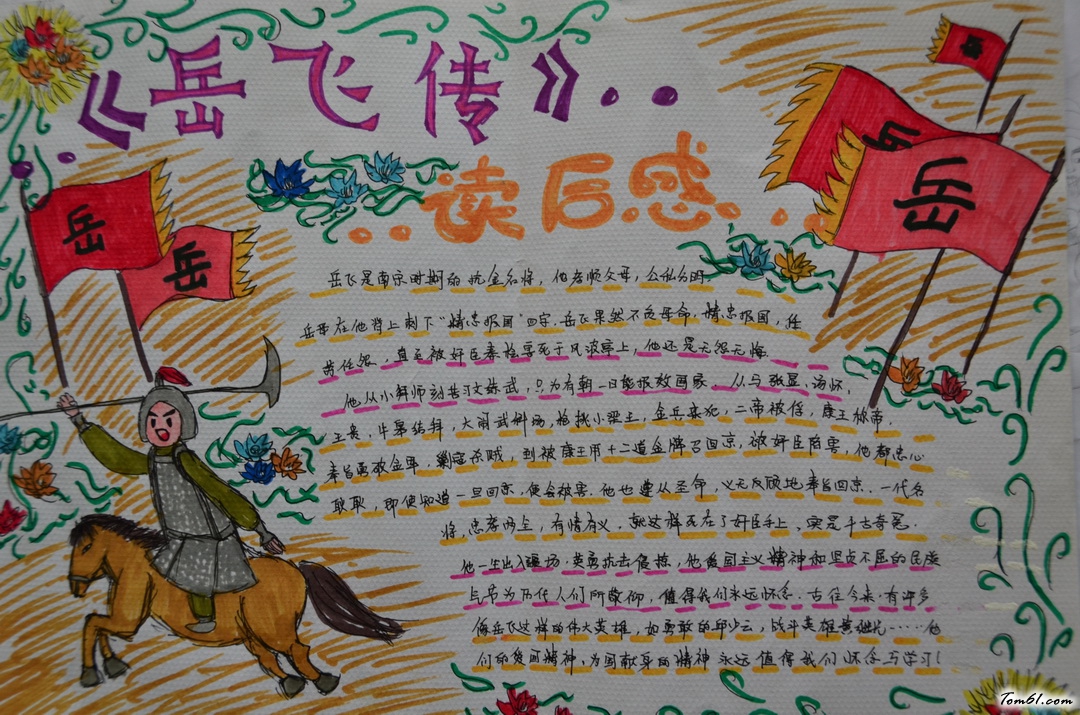 《岳飞传》
读后感
岳
岳
岳
岳
岳
岳飞是南京时期的抗金名将，他孝顺父母，公私分明。
岳母在他背上刺下“精忠报国”四字。岳飞果然不负母命，精忠报国，任
劳任怨，直至被奸臣秦桧害死于风波亭上，他还是无怨无悔。
他从小拜师刻苦习文练武，只为有朝一日能报效国家。从与张显、汤怀、
王贵、牛皋结拜，大闹武科场，枪挑小梁王，金兵来犯，二帝被俘，康王称帝，
奉旨勇破金军，剿寇杀贼，到被康王用十二道金牌召回京，被奸臣陷害，他都忠心
耿耿，即使知道一旦回京，便会被害，他也遵从圣命，义无反顾地奉旨回京。一代名
将，忠孝两全，有情有义，就这样死在了奸臣手上，实是千古奇冤。
他一生出入疆场，英勇抗击，他爱国主义精神和坚贞不屈的民族
气节为历代人们所敬仰，值得我们永远怀念。古往今来，有许多
像岳飞这样的伟大英雄，如勇敢的邱少云，战斗英雄黄继光……他
们的爱国精神，为国献身的精神永远值得我们怀念与学习！
Tom61.com